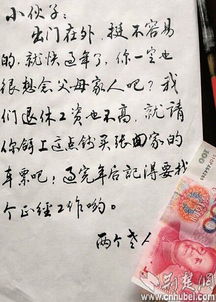 小伙子：
出门在外，挺不容易
的，就快过年了，你一定也
很想念父母家人吧？我
们退休工资也不高，就请
你留上这点钱买张回家的
车票吧；过完年后记得要找
个正经工作哟。
两个老人
100
荆楚网
www.cnhubei.com